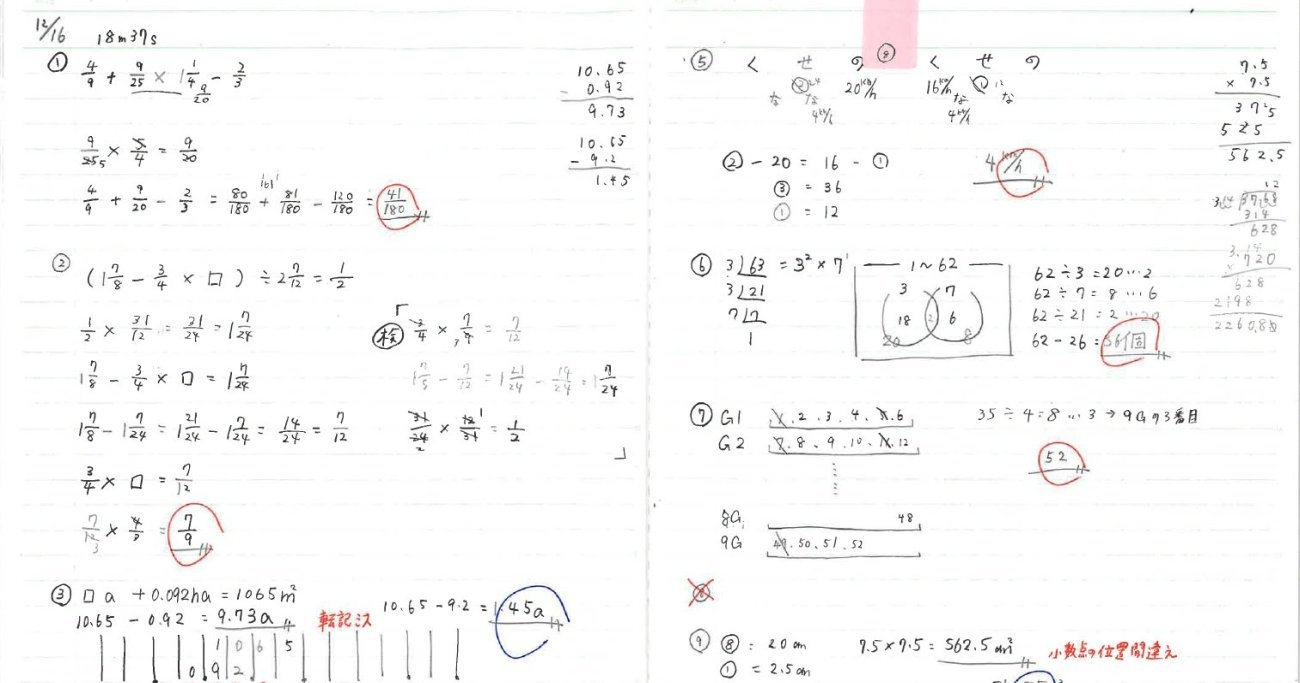 12/16 18m37s
① 4/9 + 9/25 × 1 1/4 - 2/3
9/20
9/25 × 5/4 = 9/20
4/9 + 9/20 - 2/3 = 80/180 + 81/180 - 120/180 = 41/180
10.65
- 0.92
9.73
10.65
- 9.2
1.45
② (1 7/8 - 3/4 × □) ÷ 2 7/12 = 1/2
1/2 × 31/12 = 31/24 = 1 7/24
1 7/8 - 3/4 × □ = 1 7/24
1 7/8 - 1 7/24 = 1 21/24 - 1 7/24 = 14/24 = 7/12
3/4 × □ = 7/12
7/12 × 4/3 = 7/9
検 3/4 × 7/9 = 7/12
1 7/8 - 7/12 = 1 21/24 - 14/24 = 1 7/24
31/24 × 12/31 = 1/2
③ □a + 0.092ha = 1065m²
10.65 - 0.92 = 9.73a 転記ミス 10.65 - 9.2 = 1.45a
1 0 6 5
0 9 2
⑤ く せ の ⑧ く せ の
20km/h 16km/h
な な な な
② - 20 = 16 - ①
③ = 36
① = 12
4km/h
7.5
× 7.5
375
525
562.5
⑥ 3 63 = 3² × 7¹
3 21
7 7
1
1～62
3 7
18 2 6
20 8
62÷3=20…2
62÷7=8…6
62÷21=2…20
62-26=36個
628
× 720
628
2198
2260.80
⑦ G1 1.2.3.4.5.6
G2 7.8.9.10.11.12
8G 48
9G 49.50.51.52
35÷4=8…3→9Gの3番目
52
⑧
⑨ ⑧ = 20cm 7.5×7.5=562.5cm² 小数点の位置間違え
① = 2.5cm